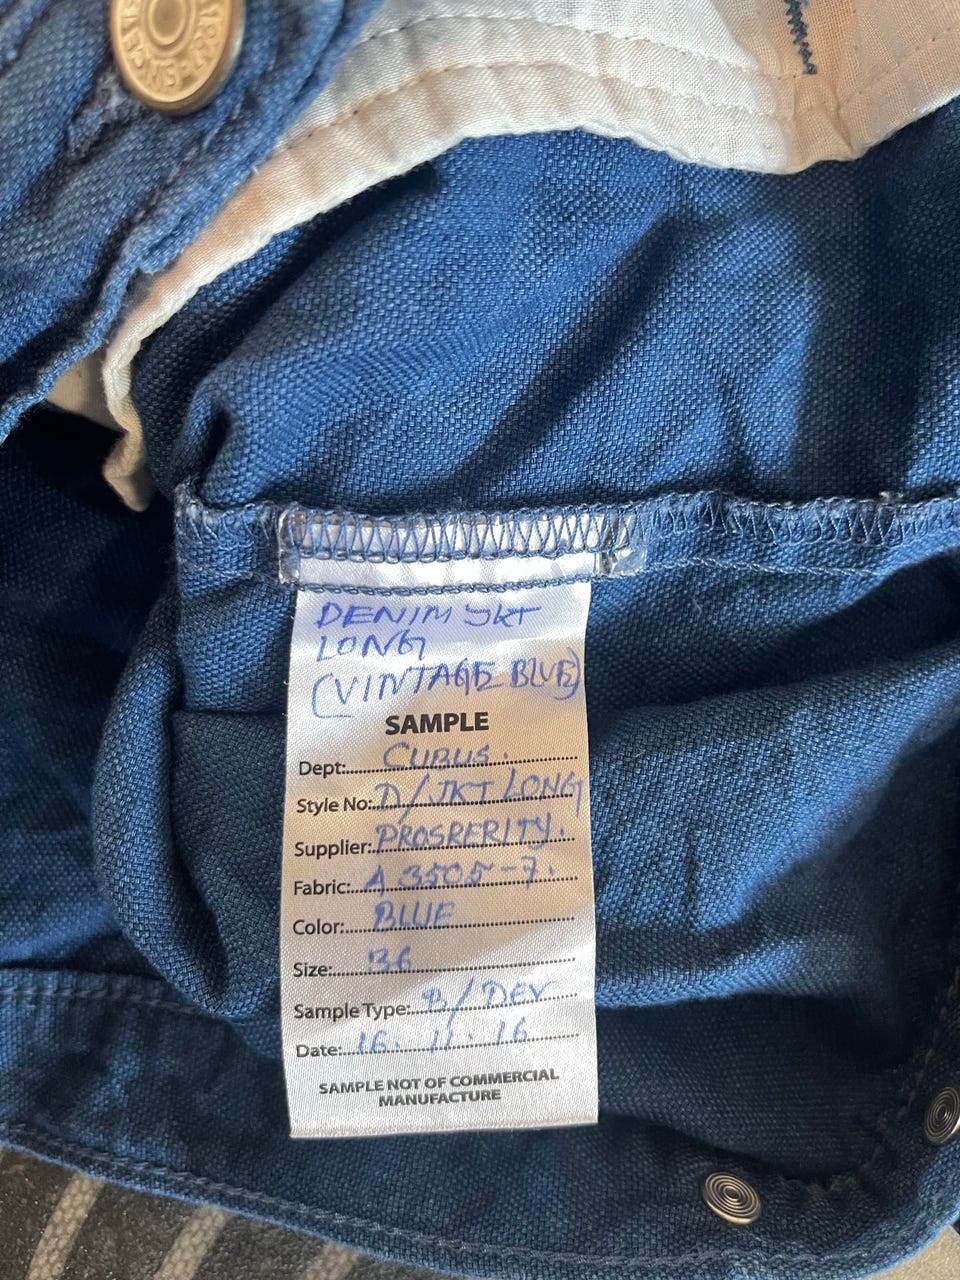 DENIM JKT
LONG
(VINTAGE BLUE)
SAMPLE
Dept: CUBUS.
Style No: D/JKT LONG
Supplier: PROSRERITY.
Fabric: A 3505-7.
Color: BLUE
Size: 36
Sample Type: B/DEV
Date: 16.11.16
SAMPLE NOT OF COMMERCIAL
MANUFACTURE